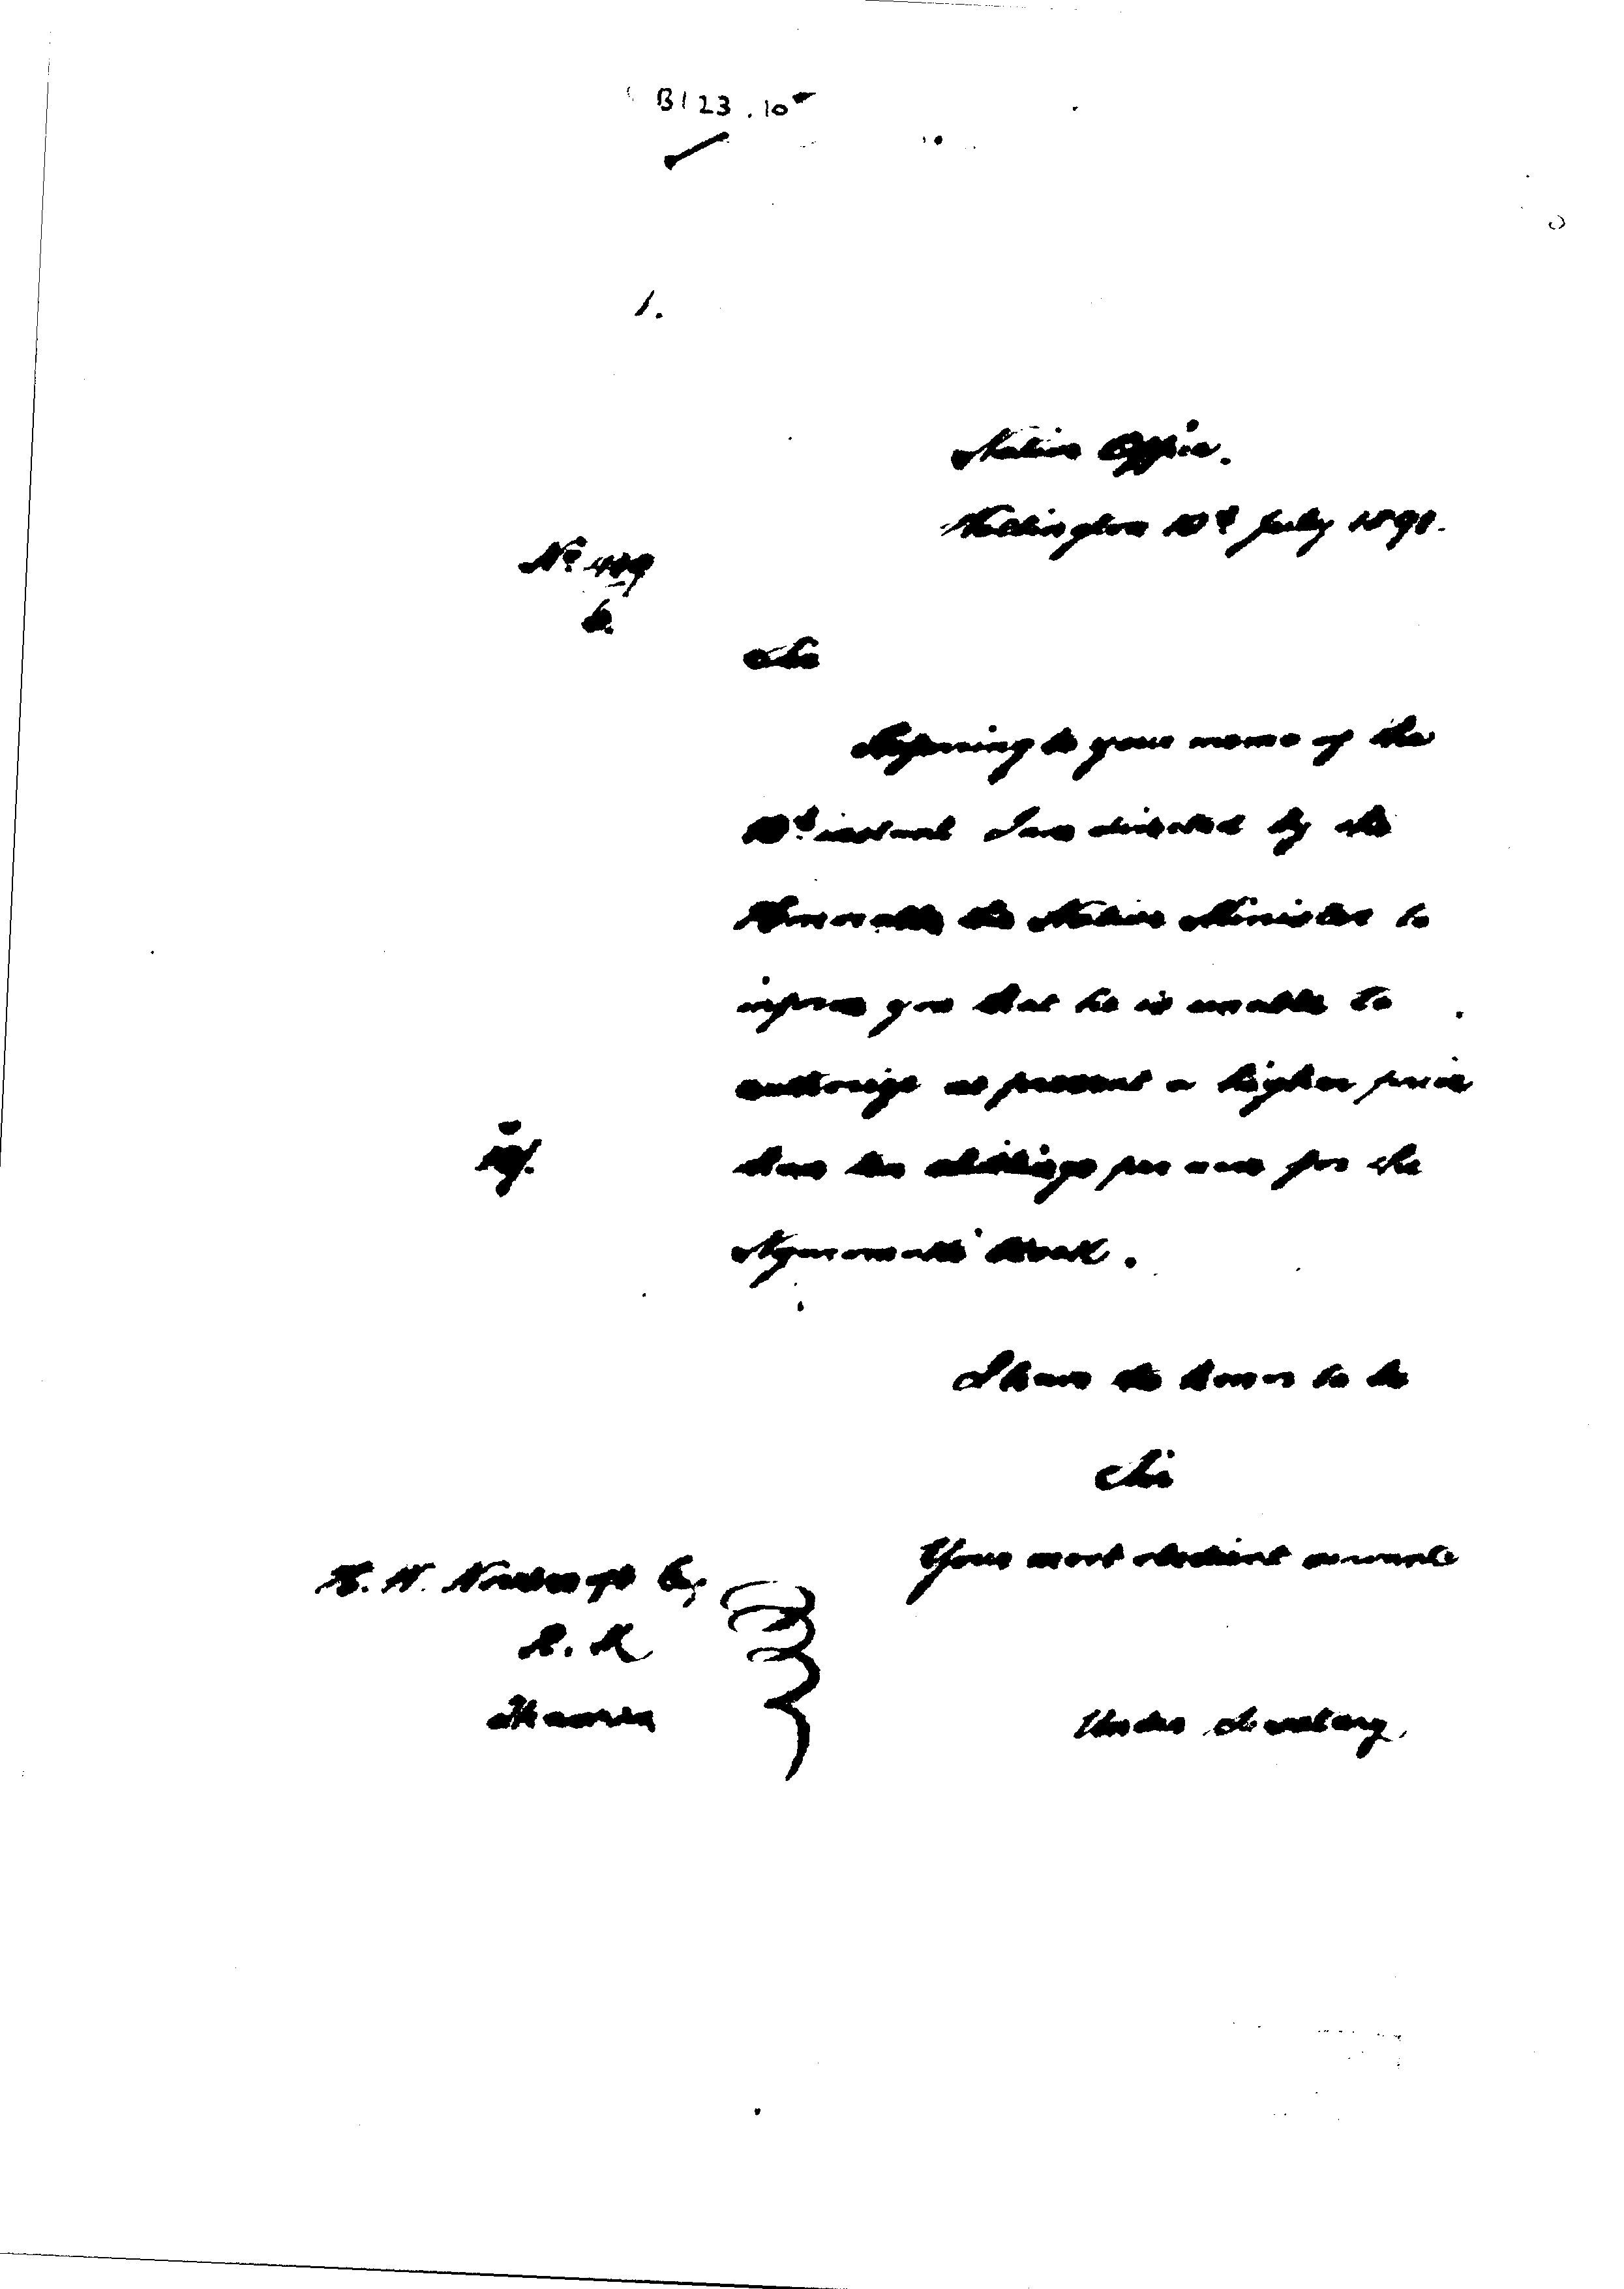 B123.10
1.
Native Office.
Wellington 10th July 1891.
No 449
6.
Sir
Referring to your memo of the
10th instant I am directed by the
Honorable the Native Minister to
inform you that he is unable to
authorize at present a higher price
than ten shillings per acre for the
Block.
I have the honor to be
Sir
Your most obedient servant
H. W. Esq
R. M
Under Secretary.